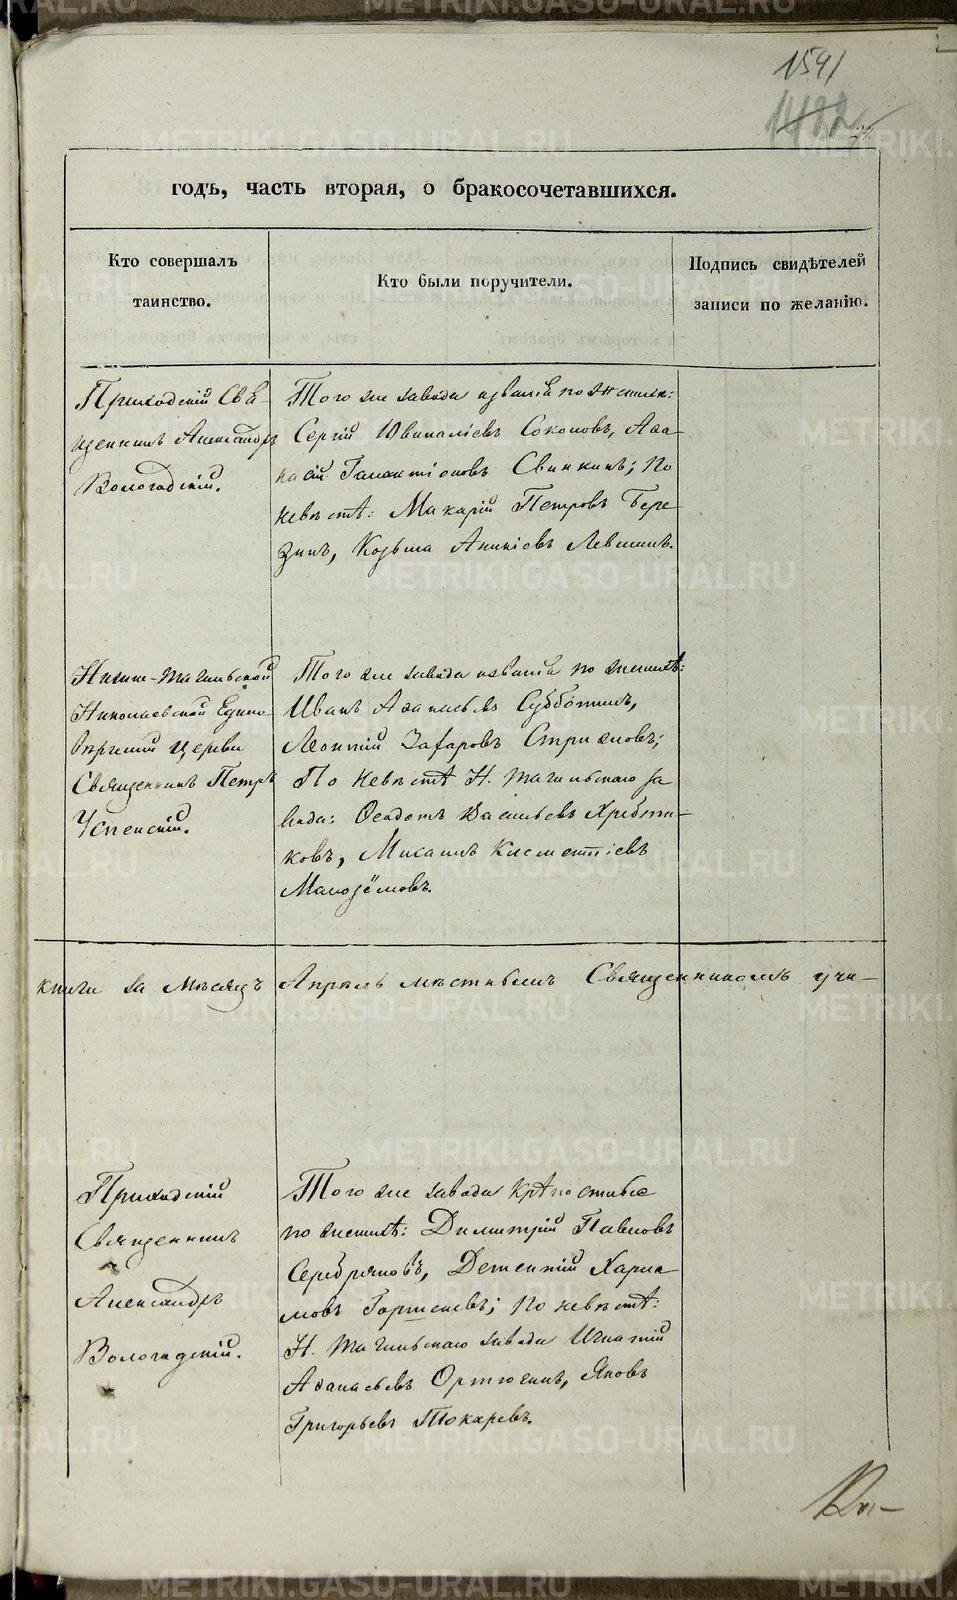 1541
годъ, часть вторая, о бракосочетавшихся.
Кто совершалъ
таинство.
Кто были поручители.
Подпись свидѣтелей
записи по желанію.
Приходскій Свя-
щенникъ Александръ
Вологодскій.
Того же завода по женихѣ:
Сергій Ювиналіевъ Соколовъ, Аѳа-
насій Галактіоновъ Свинкинъ; По
невѣстѣ: Макарій Петровъ Бере-
зинъ, Козьма Аникіевъ Левшинъ.
Нижне-Тагильской
Николаевской Едино-
вѣрческой церкви
Священникъ Петръ
Успенскій.
Того же завода по женихѣ:
Иванъ Аѳанасьевъ Субботинъ,
Леонтій Захаровъ Стрижовъ;
По невѣстѣ Н. Тагильскаго за-
вода: Ѳеодотъ Васильевъ Хребти-
ковъ, Михаилъ Клементіевъ
Малозёмовъ.
книги за мѣсяцъ Апрель мѣстнымъ Священникомъ учи-
Приходскій
Священникъ
Александръ
Вологодскій.
Того же завода крѣпостные
по женихѣ: Димитрій Павловъ
Серебряковъ, Дементій Харла-
мовъ; по невѣстѣ:
Н. Тагильскаго завода Игнатій
Аѳанасьевъ Ортюгинъ, Яковъ
Григорьевъ Токаревъ.
METRIKI.GASO-URAL.RU